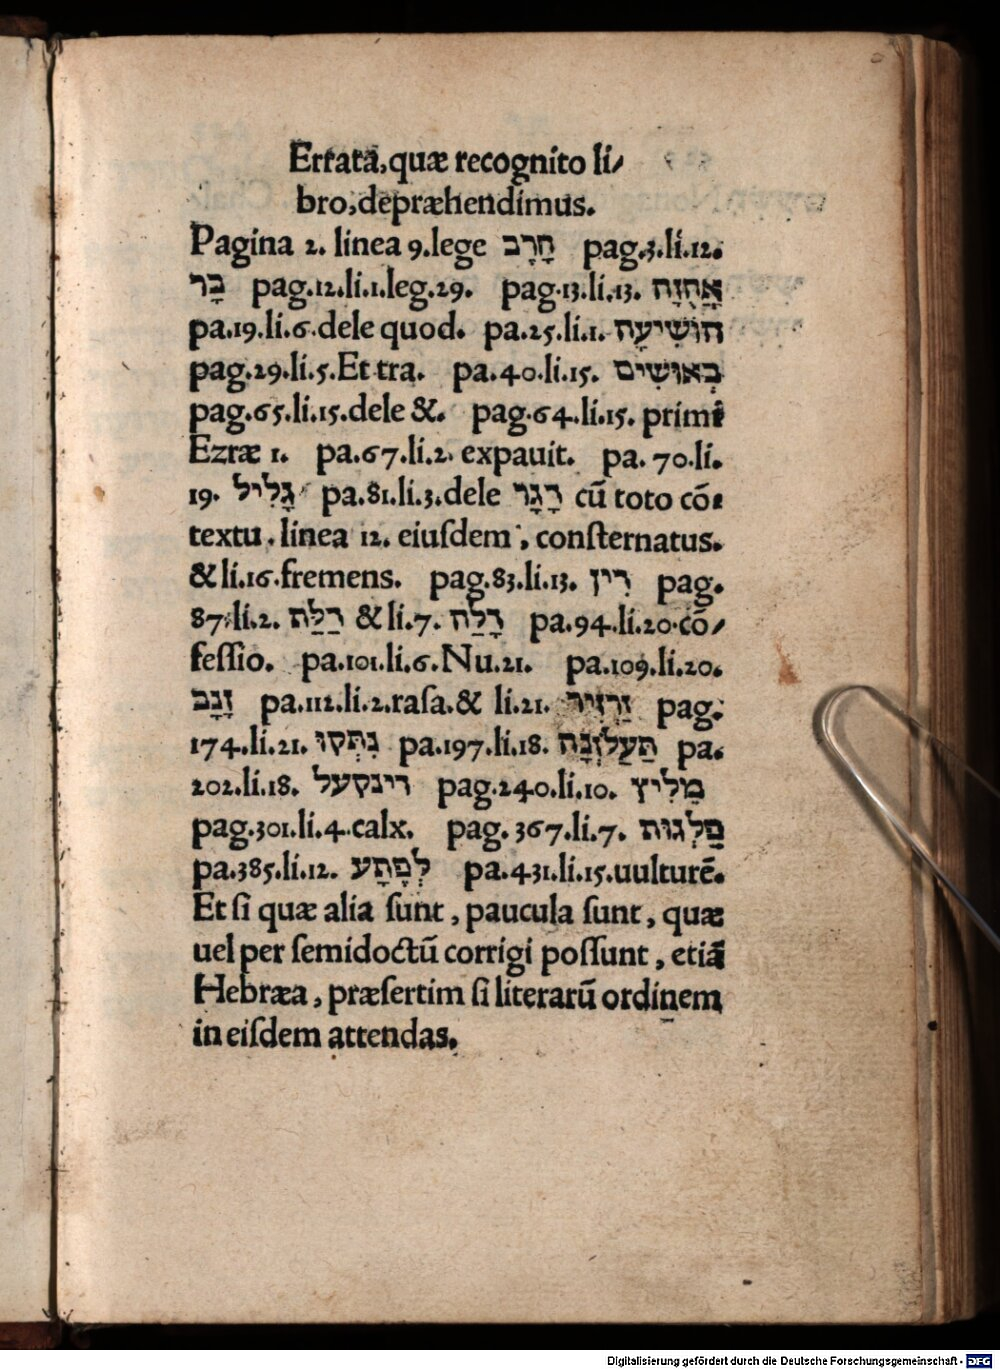 Errata, quæ recognito li/
bro, depræhendimus.
Pagina 2. linea 9. lege חָרָב pag. 3. li. 12.
בָּר pag. 12. li. 1. leg. 29. pag. 13. li. 13. אֲחֻזָּה
pa. 19. li. 6. dele quod. pa. 25. li. 1. הוֹשִׁיעָה
pag. 29. li. 5. Et tra. pa. 40. li. 15. בְּאוּשִׁים
pag. 65. li. 15. dele &. pag. 64. li. 15. primi
Ezræ 1. pa. 67. li. 2. expauit. pa. 70. li.
19. גָּלִיל pa. 81. li. 3. dele דָגָר cũ toto cõ/
textu. linea 12. eiuſdem, conſternatus.
& li. 16. fremens. pag. 83. li. 13. דִּין pag.
87. li. 2. דַּלַּת & li. 7. דָּלַח pa. 94. li. 20. cõ/
feſſio. pa. 101. li. 6. Nu. 21. pa. 109. li. 20.
זָנָב pa. 112. li. 2. raſa. & li. 21. זַרְזִיר pag.
174. li. 21. נִתְּקוּ pa. 197. li. 18. תַּעֲלֹזְנָה pa.
202. li. 18. רינקעל pag. 240. li. 10. מֵלִיץ
pag. 301. li. 4. calx. pag. 367. li. 7. פְּלַגּוּת
pa. 385. li. 12. לְפֶתַע pa. 431. li. 15. uulturẽ.
Et ſi quæ alia ſunt, paucula ſunt, quæ
uel per ſemidoctũ corrigi poſſunt, etiã
Hebræa, præſertim ſi literarũ ordinem
in eiſdem attendas.
Digitalisierung gefördert durch die Deutsche Forschungsgemeinschaft - DFG